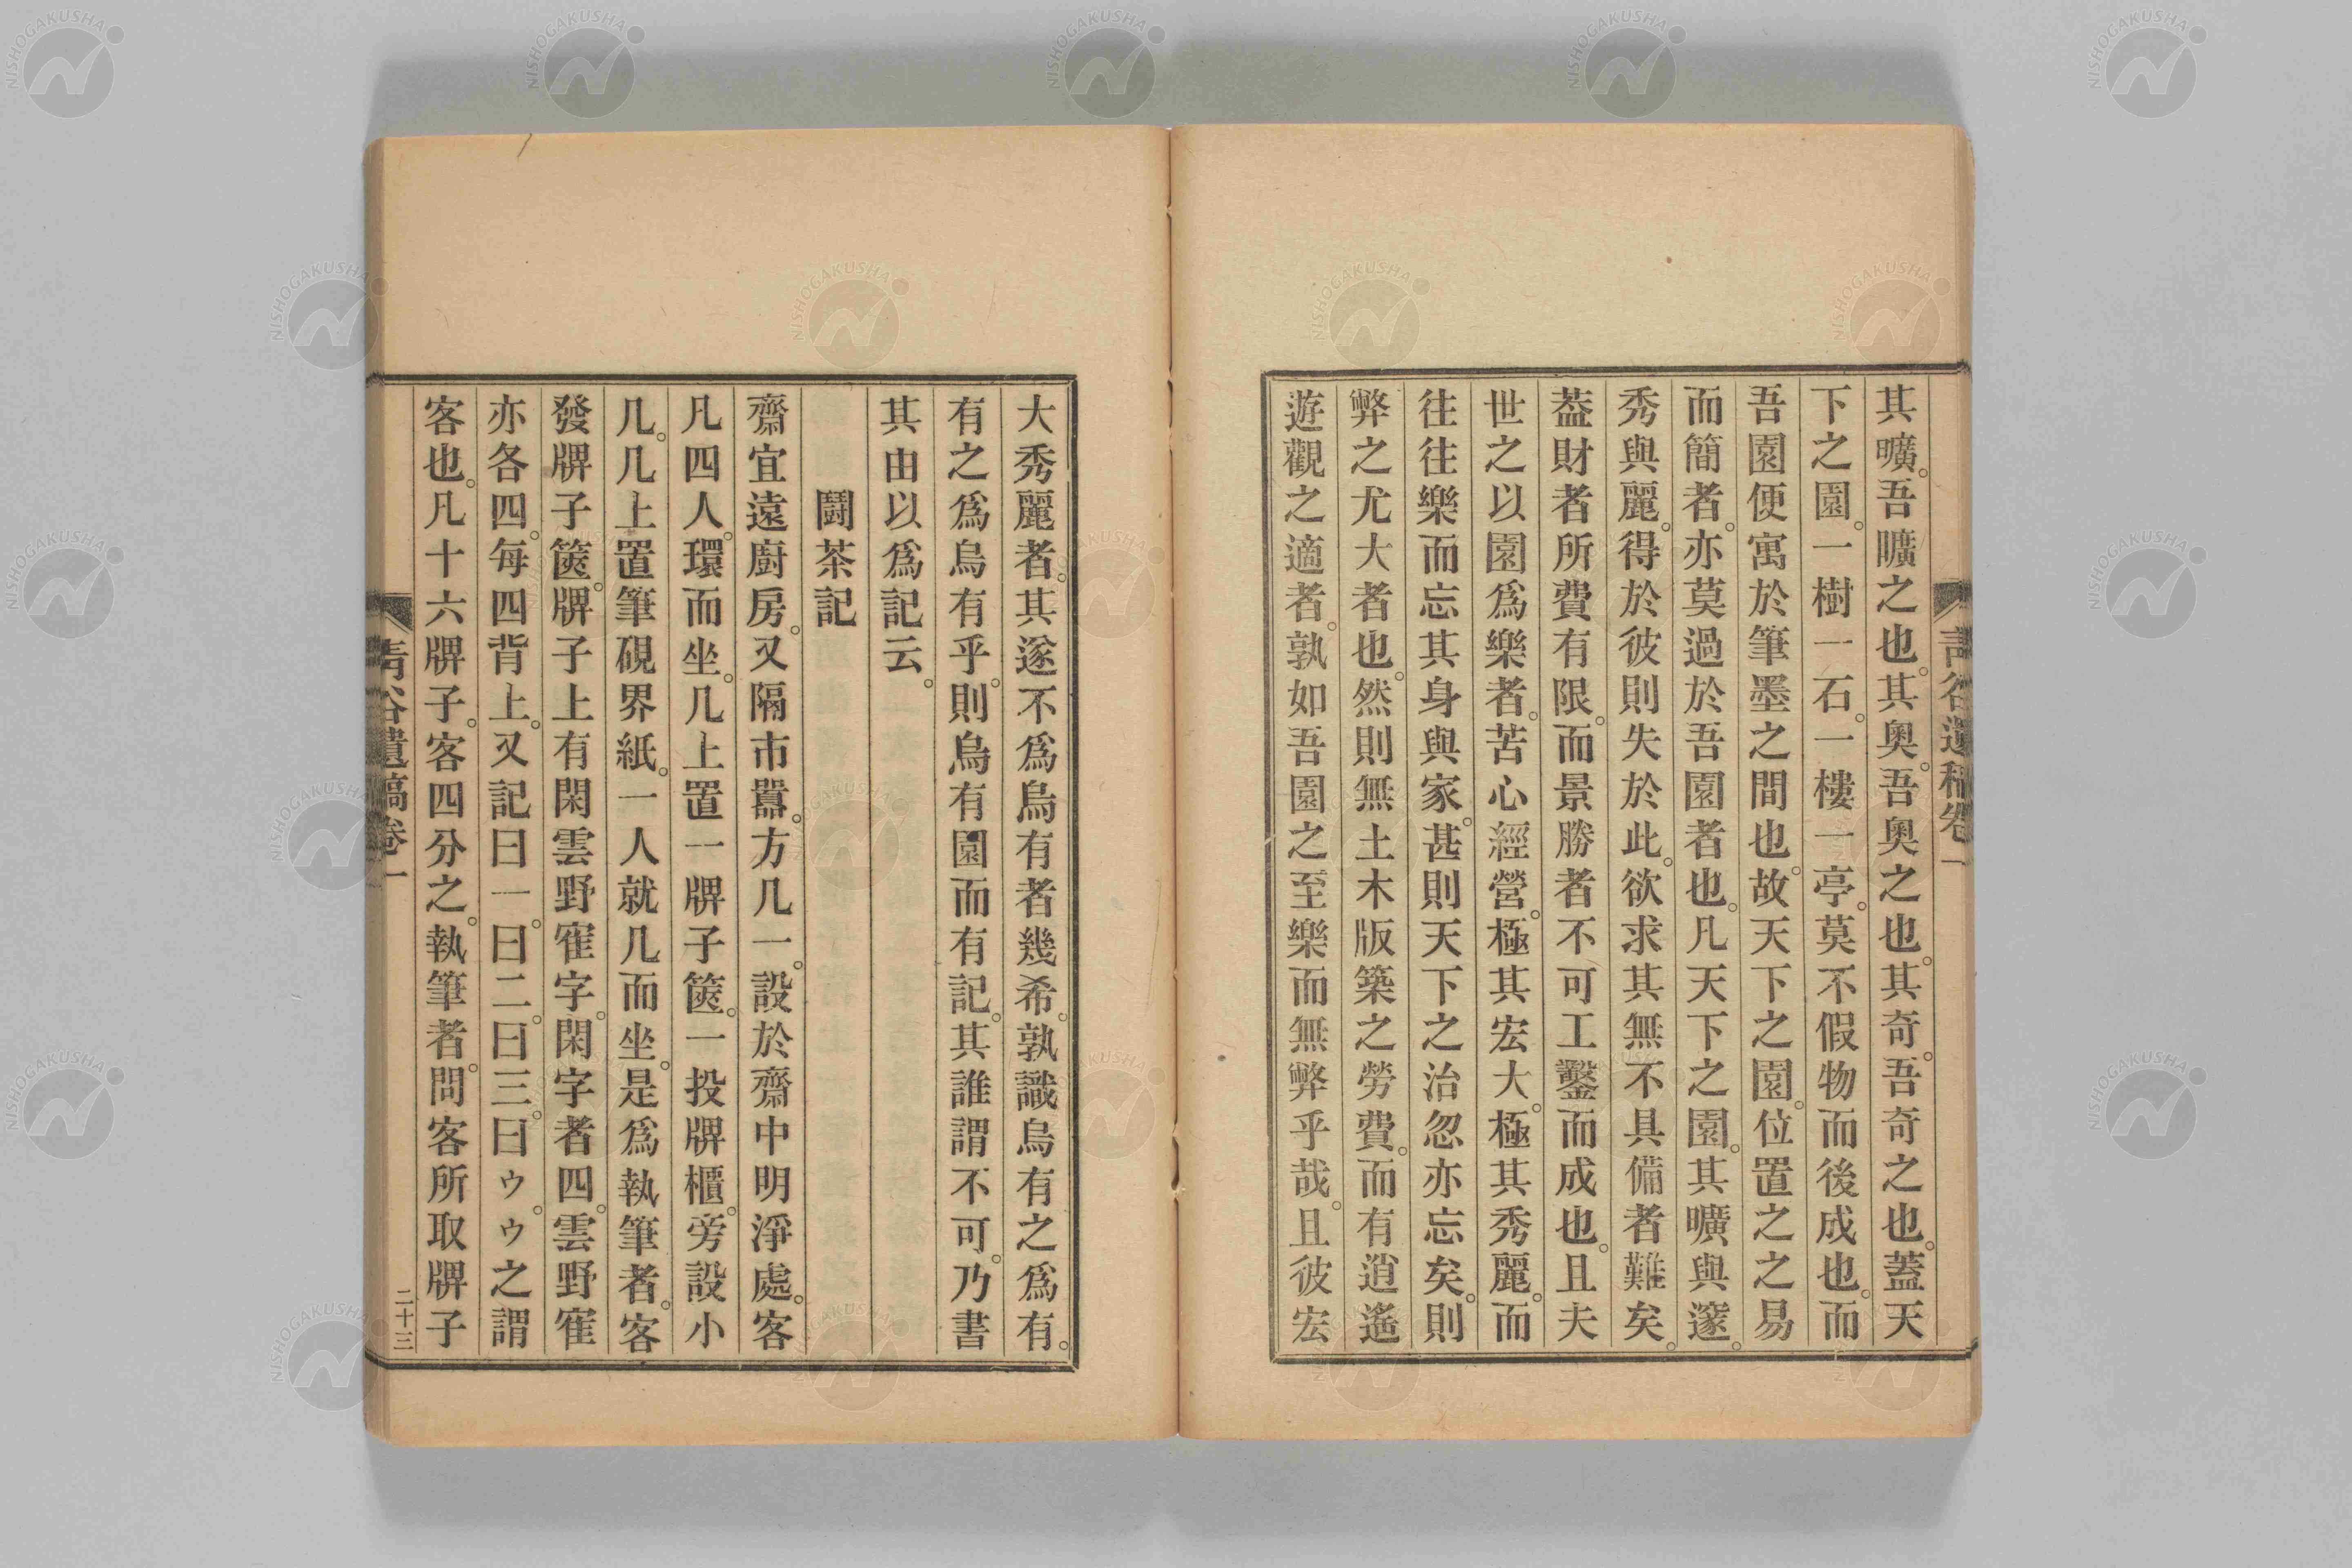 其曠。吾曠之也。其奧。吾奧之也。其奇。吾奇之也。蓋天
下之園。一樹一石。一樓一亭。莫不假物而後成也。而
吾園便寓於筆墨之間也。故天下之園。位置之之易
而簡者。亦莫過於吾園者也。凡天下之園。其曠與邃。
秀與麗。得於彼則失於此。欲求其無不具備者難矣。
葢財者所費有限。而景勝者不可工鑿而成也。且夫
世之以園爲樂者。苦心經營。極其宏大。極其秀麗。而
往往樂而忘其身與家。甚則天下之治忽亦忘矣。則
弊之尤大者也。然則無土木版築之勞費。而有逍遙
遊觀之適者。孰如吾園之至樂而無弊乎哉。且彼宏
大秀麗者。其遂不爲烏有者幾希。孰識烏有之爲有。
有之爲烏有乎。則烏有園而有記。其誰謂不可。乃書
其由以爲記云。
鬪茶記
齋宜遠廚房。又隔市囂。方几一。設於齋中明淨處。客
凡四人。環而坐。几上置一牌子篋。一投牌櫃。旁設小
几。几上置筆硯界紙。一人就几而坐。是爲執筆者。客
發牌子篋。牌子上有閑雲野寉字。閑字者四。雲野寉
亦各四。每四背上。又記曰一。曰二。曰三。曰ゥ。ゥ之謂
客也。凡十六牌子。客四分之。執筆者。問客所取牌子
青谷遺稿卷一
二十三
NISHOGAKUSHA